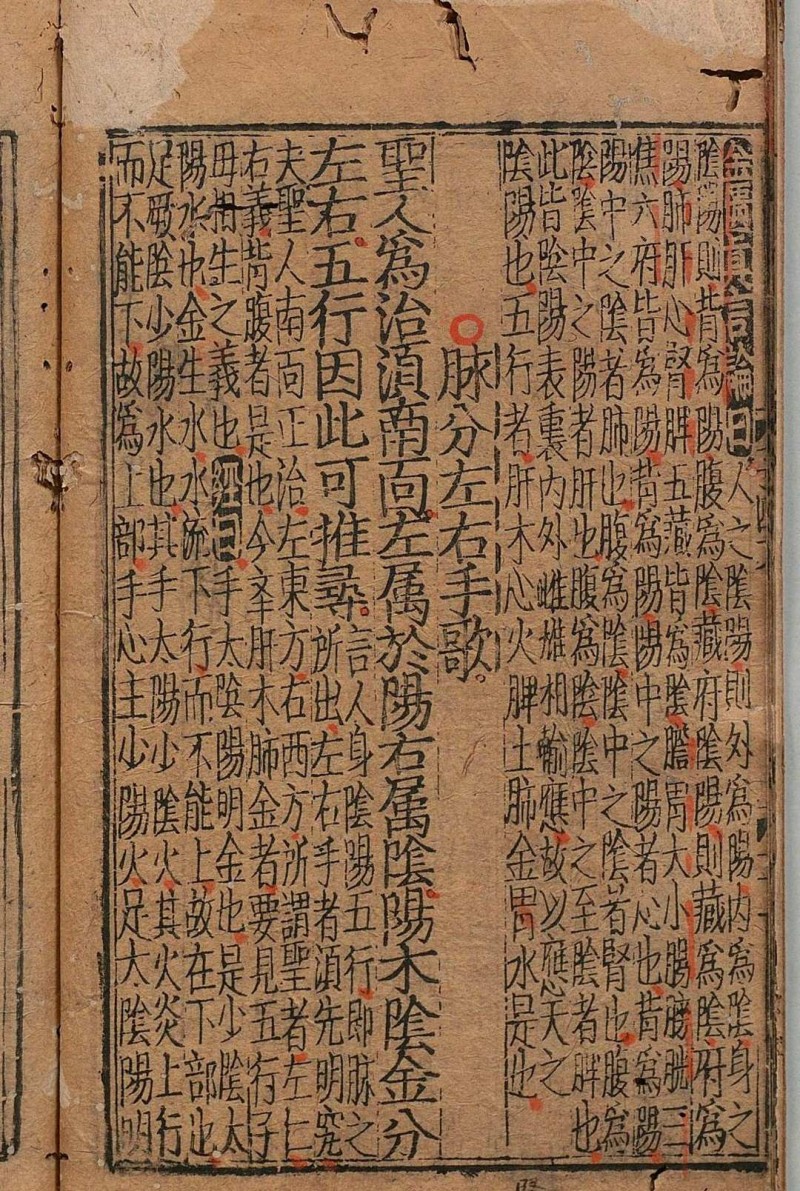 金匱真言論曰人之陰陽則外爲陽内爲陰身之
陰陽則背爲陽腹爲陰藏府陰陽則藏爲陰府爲
陽肺肝心腎脾五藏皆爲陰膽胃大小腸膀胱三
焦六府皆爲陽背爲陽陽中之陽者心也背爲陽
陽中之陰者肺也腹爲陰陰中之陰者腎也腹爲
陰陰中之陽者肝也腹爲陰陰中之至陰者脾也
此皆陰陽表裏内外雌雄相輸應故以應天之
陰陽也五行者肝木心火脾土肺金胃水是也
脉分左右手歌
聖人爲治湏南面左属於陽右属陰陽木陰金分
左右五行因此可推尋
言人身陰陽五行即脉之
所出左右手者湏先明究
夫聖人南面正治左東方右西方所謂聖者左仁
右義背腹者是也今辛肝木肺金者要見五行子
母相生之義也經曰手太陰陽明金也是少陰太
陽水也金生水水流下行而不能上故在下部也
足厥陰少陽水也其手太陽少陰火其火炎上行
而不能下故爲上部手心主少陽火足太陰陽明